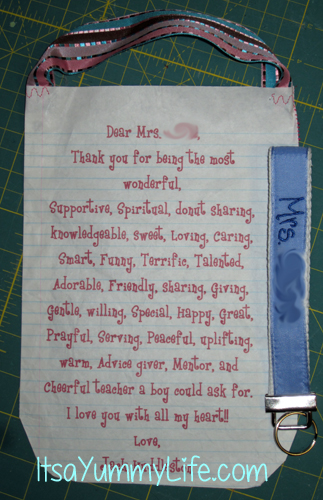 Dear Mrs.
Thank you for being the most
wonderful,
Supportive, Spiritual, donut sharing,
knowledgeable, sweet, Loving, Caring,
Smart, Funny, Terrific, Talented,
Adorable, Friendly, sharing, Giving,
Gentle, willing, Special, Happy, Great,
Prayful, Serving, Peaceful, uplifting,
warm, Advice giver, Mentor, and
Cheerful teacher a boy could ask for.
I love you with all my heart!!
Love,
Mrs.
ItsaYummyLife.com